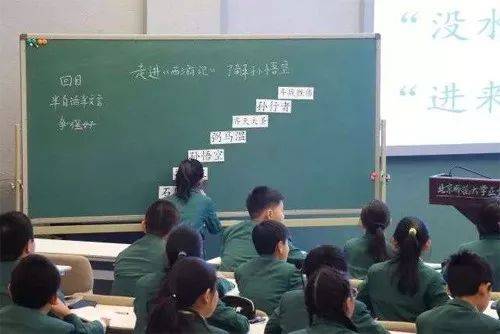 走进《西游记》 了解孙悟空
回目
半白话半文言
斗战胜佛
孙行者
齐天大圣
弼马温
孙悟空
石
“没水
“进来
北京师范大学